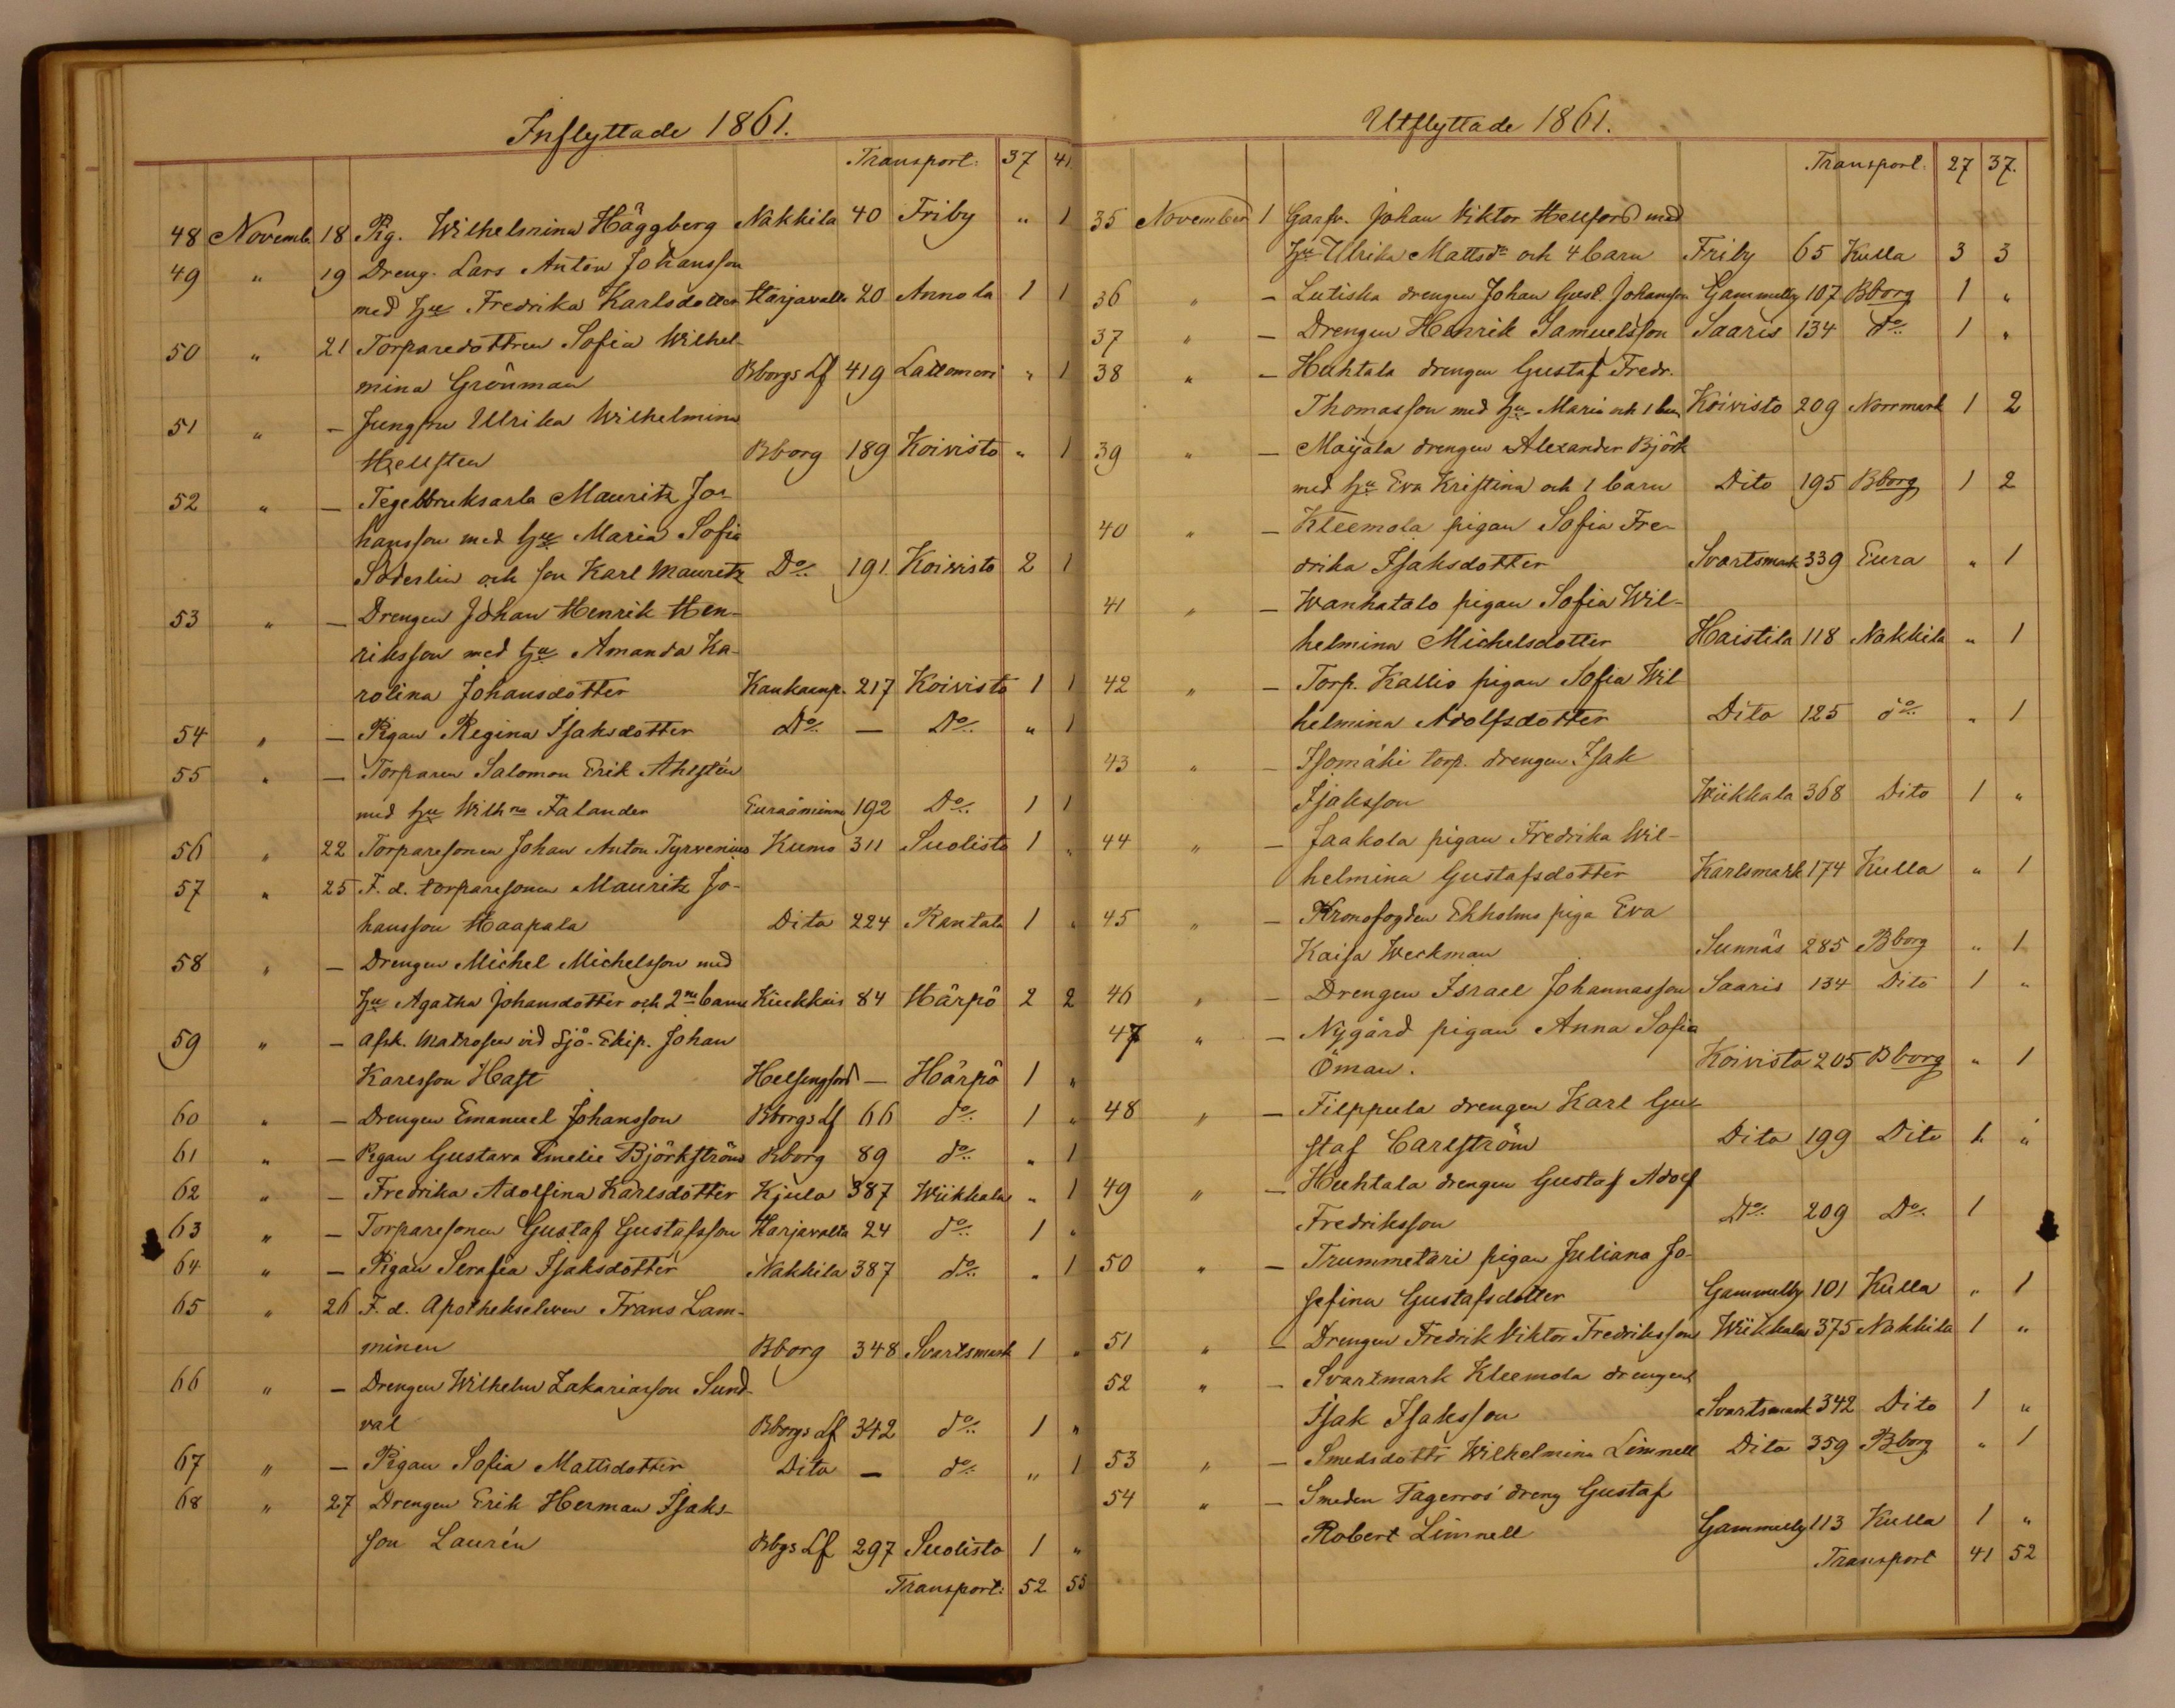 Inflyttade 1861.
Transport: 37 41.
48 Novemb. 18 Pig. Wilhelmina Häggberg Nakkila 40 Friby " 1
49 " 19 Dreng. Lars Anton Johansson
med hu Fredrika Karlsdotter Harjavalta 20 Annola 1 1
50 " 21 Torparedottren Sofia Wilhel-
mina Grönman Bborgs Lf 419 Lattomeri " 1
51 " — Jungfru Ulrika Wilhelmina
Hellsten Bborg 189 Koivisto " 1
52 " — Tegelbruksarb Mauritz Jo-
hansson med hu Maria Sofia
Söderlin och son Karl Mauritz Do 191. Koivisto 2 1
53 " — Drengen Johan Henrik Hen-
riksson med hu Amanda Ka-
rolina Johansdotter Kankaanp. 217 Koivisto 1 1
54 " — Pigan Regina Isaksdotter Do — Do " 1
55 " — Torparen Salomon Erik Ahlsten
med hu Wilhna Falander Euraåminne 192 Do 1 1
56 " 22 Torparesonen Johan Anton Tyrvenius Kumo 311 Suolisto 1 "
57 " 25 F. d. torparesonen Mauritz Jo-
hansson Haapala Dito 224 Rantala 1 "
58 " — Drengen Michel Michelsson med
hu Agatha Johansdotter och 2ne barn Kiukkais 84 Härpö 2 2
59 " — Afsk. Matrosen vid Sjö-Ekip. Johan
Karlsson Hast Helsingfors — Härpö 1 "
60 " — Drengen Emanuel Johansson Bborgs Lf 66 do 1 "
61 " — Pigan Gustava Emelie Björkström Bborg 89 do " 1
62 " — Fredrika Adolfina Karlsdotter Kjulo 387 Wiikkala " 1
63 " — Torparesonen Gustaf Gustafsson Harjavalta 24 do 1 "
64 " — Pigan Serafia Isaksdotter Nakkila 387 do " 1
65 " 26 F. d. Apothekseleven Frans Lam-
minen Bborg 348 Svartsmark 1 "
66 " — Drengen Wilhelm Zakariasson Sund-
val Bborgs Lf 342 do 1 "
67 " — Pigan Sofia Mattsdotter Dito — do " 1
68 " 27 Drengen Erik Herman Isaks-
son Laurén Bbgs Lf 297 Suolisto 1 "
Transport: 52 55
Utflyttade 1861.
Transport. 27 37.
35 November 1 Garfv. Johan Viktor Hellfors med
hu Ulrika Mattsdr och 4 barn Friby 65 Kulla 3 3
36 " — Lutiska drengen Johan Gust. Johansson Gammelby 107 Bborg 1 "
37 " — Drengen Henrik Samuelsson Saaris 134 do 1 "
38 " — Huhtala drengen Gustaf Fredr.
Thomasson med hu Maria och 1 barn Koivisto 209 Norrmark 1 2
39 " — Maijala drengen Alexander Björk
med hu Eva Kristina och 1 barn Dito 195 Bborg 1 2
40 " — Kleemola pigan Sofia Fre-
drika Isaksdotter Svartsmark 339 Eura " 1
41 " — Wanhatalo pigan Sofia Wil-
helmina Michelsdotter Haistila 118 Nakkila " 1
42 " — Torp. Kallio pigan Sofia Wil
helmina Adolfsdotter Dito 125 do " 1
43 " — Isomäki torp. drengen Isak
Isaksson Wiikkala 368 Dito 1 "
44 " — Jaakola pigan Fredrika Wil-
helmina Gustafsdotter Karlsmark 174 Kulla " 1
45 " — Kronofogden Ekholms piga Eva
Kaisa Weckman Sunnäs 285 Bborg " 1
46 " — Drengen Israel Johannasson Saaris 134 Dito 1 "
47 " — Nygård pigan Anna Sofia
Öman. Koivisto 205 Bborg " 1
48 " — Filppula drengen Karl Gu-
staf Carlström Dito 199 Dito 1. "
49 " — Huhtala drengen Gustaf Adolf
Fredriksson Do 209 Do 1
50 " — Trummetari pigan Juliana Jo-
sefina Gustafsdotter Gammelby 101 Kulla " 1
51 " — Drengen Fredrik Viktor Fredriksson Wiikkala 375 Nakkila 1 "
52 " — Svartmark Kleemola drengen
Isak Isaksson Svartsmark 342 Dito 1 "
53 " — Smedsdottr Wilhelmina Limnell Dito 359 Bborg " 1
54 " — Smeden Fagerros' dreng Gustaf
Robert Limnell Gammelby 113 Kulla 1 "
Transport 41 52